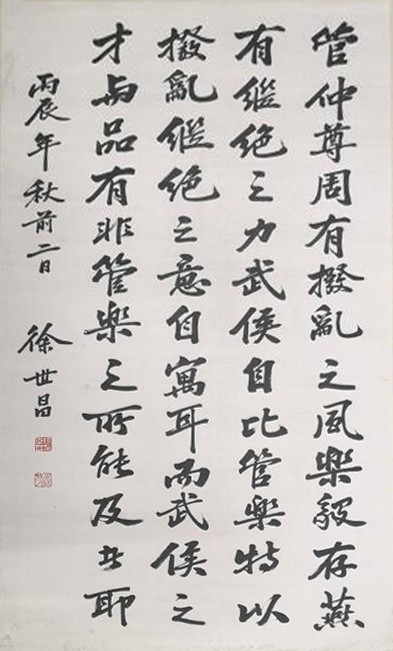 管仲尊周有撥亂之風樂毅存燕
有繼絕之力武侯自比管樂特以
撥亂繼絕之意自寓耳而武侯之
才與品有非管樂之所能及者耶
丙辰年秋前二日 徐世昌